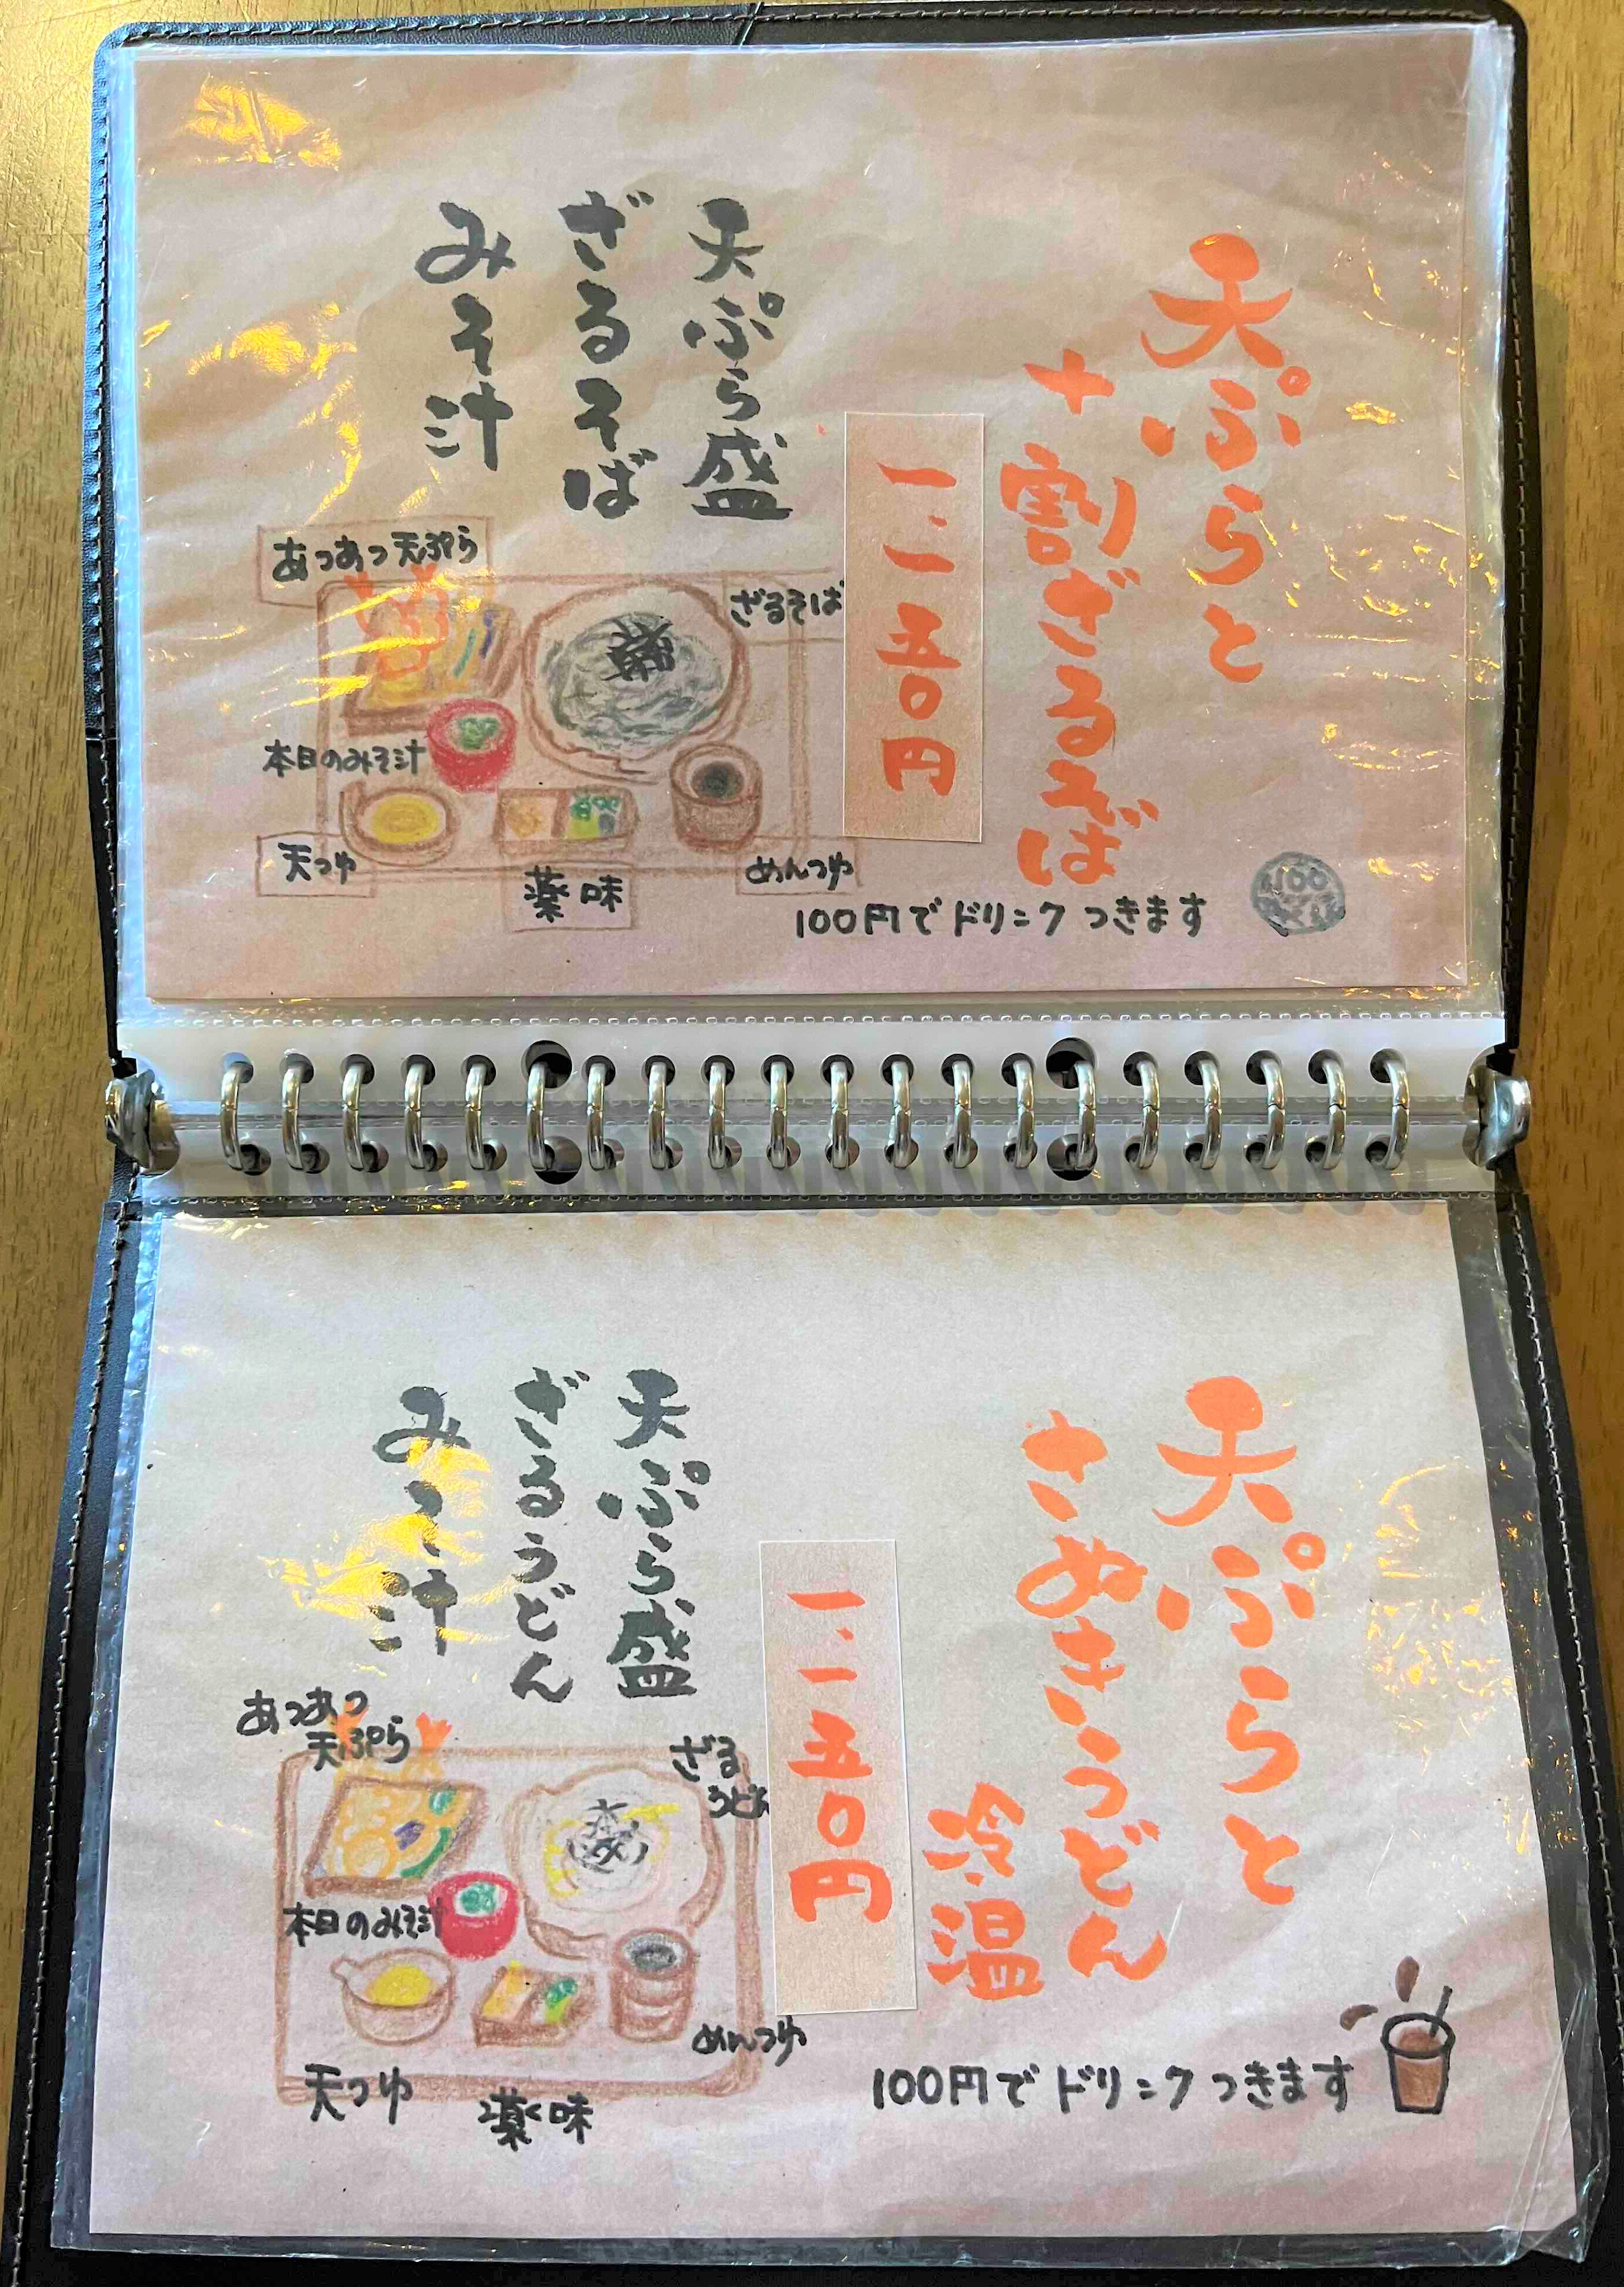 天ぷらと
十割ざるそば
一、一五〇円
天ぷら盛
ざるそば
みそ汁
あつあつ天ぷら
ざるそば
本日のみそ汁
天つゆ
薬味
めんつゆ
100円でドリンクつきます
100
天ぷらと
さぬきうどん
冷・温
一、一五〇円
天ぷら盛
ざるうどん
みそ汁
あつあつ
天ぷら
ざる
うどん
本日のみそ汁
天つゆ
薬味
めんつゆ
100円でドリンクつきます